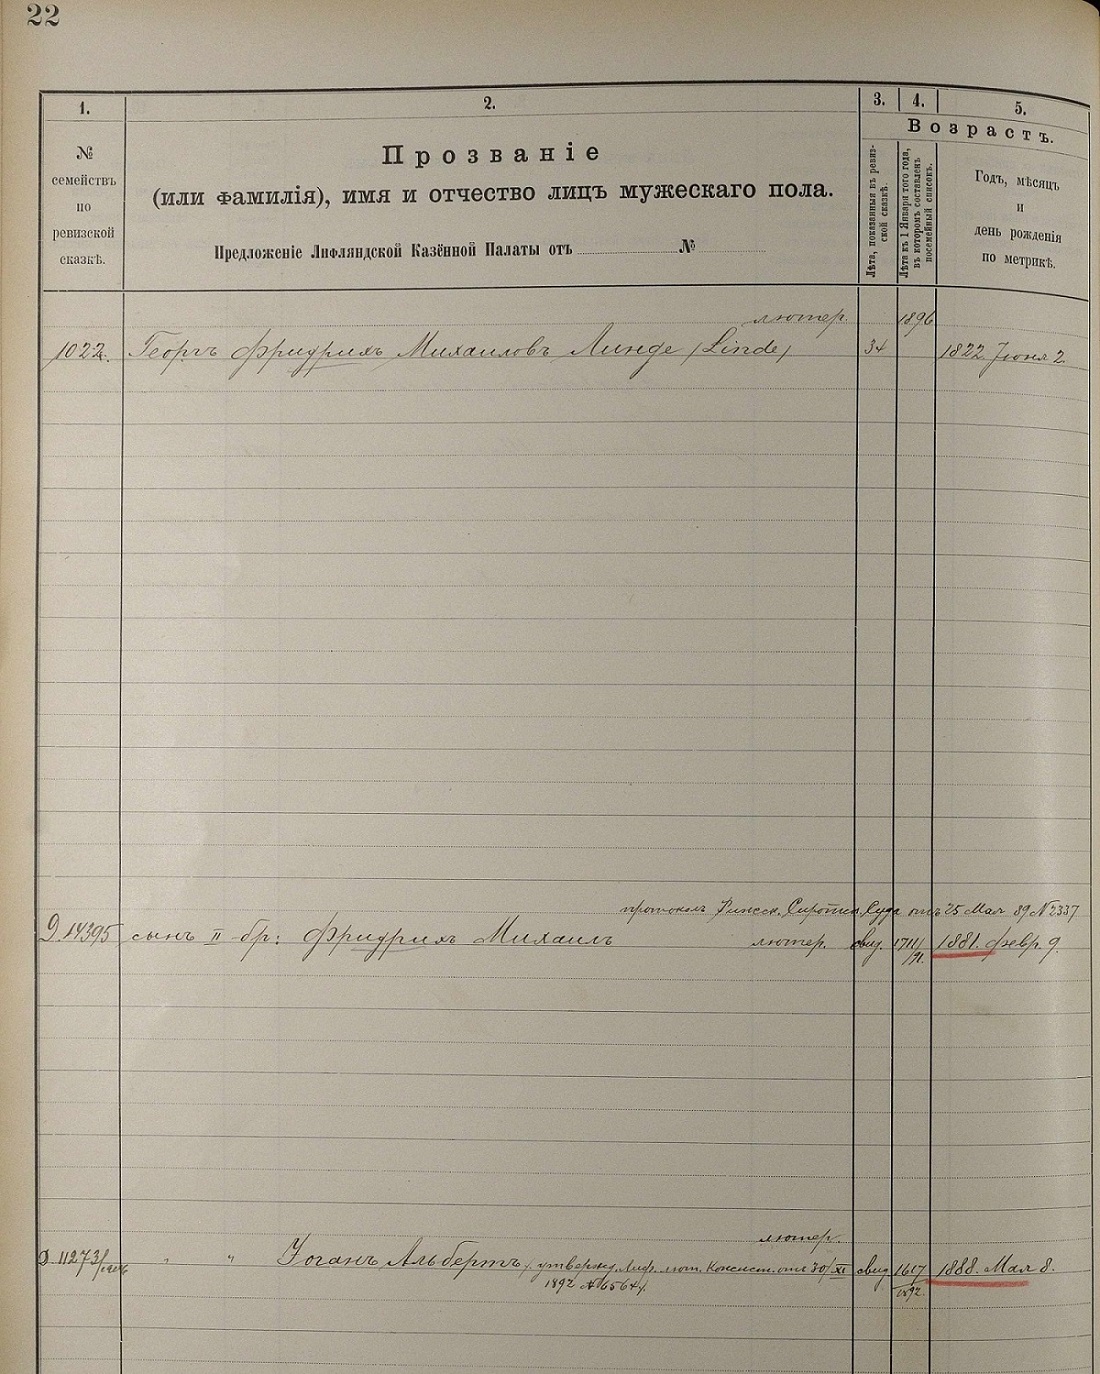 22
1.
2.
3.
4.
5.
№
семействъ
по
ревизской
сказкѣ.
Прозваніе
(или фамилія), имя и отчество лицъ мужескаго пола.
Предложеніе Лифляндской Казённой Палаты отъ № 
Возрастъ.
Лѣта, показанныя въ ревиз-
ской сказкѣ.
Лѣта къ 1 Января того года,
въ которомъ составленъ
посемейный списокъ.
Годъ, мѣсяцъ
и
день рожденія
по метрикѣ.
лютер. 1896
1022. Георгъ Фридрихъ Михаиловъ Линде (Linde) 34 1822. Іюня 2.
протоколъ Рижск. Сиротск. Суда отъ 25 Мая 89 № 2337
Д. 14395 сынъ II бр: Фридрихъ Михаилъ лютер. свид. 1881. февр. 9.
91.
лютер.
Д. 11273 " " Іоганъ Альбертъ, утвержд. Лиф. лют. Консист. отъ 30/XI свид 1617 1888. Мая 8.
1892 № 6564. 1892.